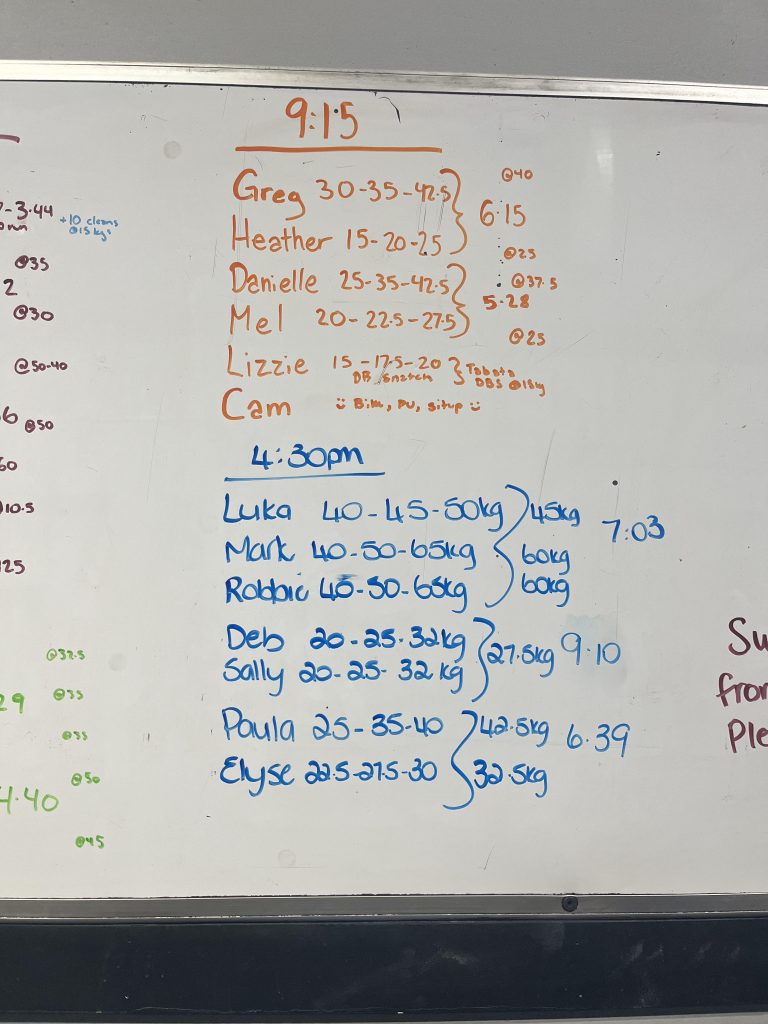 3.44
+10 cleans
@15kgs
@35
2
@30
@50-40
6 @50
60
10.5
25
@32.5
29 @35
@35
@50
4.40
@45
9:15
Greg 30-35-42.5 @40
6.15
Heather 15-20-25 @25
Danielle 25-35-42.5 @37.5
5.28
Mel 20-22.5-27.5 @25
Lizzie 15-17.5-20 Tabata
DB snatch DBS @15kg
Cam Bike, PU, situp
4:30pm
Luka 40-45-50kg 45kg 7:03
Mark 40-50-65kg 60kg
Robbie 40-50-65kg 60kg
Deb 20-25-32kg 27.5kg 9.10
Sally 20-25-32kg
Paula 25-35-40 42.5kg 6.39
Elyse 22.5-27.5-30 32.5kg
Su
from
Ple